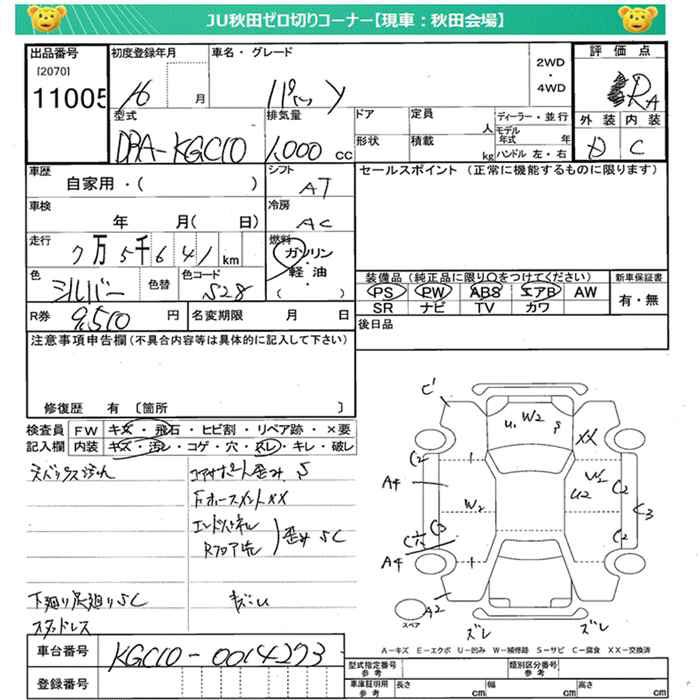 JU秋田ゼロ切りコーナー【現車:秋田会場】
出品番号 初度登録年月 車名・グレード 2WD・4WD 評価点
[2070]
11005 16 月 パッソ RA
型式 排気量 ドア 定員 人 ディーラー・並行 外装 内装
DBA-KGC10 1,000 cc 形状 積載 kg モデル年式 年 ハンドル 左・右 D C
車歴 シフト セールスポイント (正常に機能するものに限ります)
自家用・( ) AT
車検 冷房
年 月( 日) AC
走行 燃料
7万5千641km ガソリン・軽油・( )
色 色替 色コード 装備品 (純正品に限り○をつけてください) 新車保証書
シルバー S28 PS PW ABS エアB AW 有・無
SR ナビ TV カワ
R券 9,510 円 名変期限 月 日 後日品
注意事項申告欄(不具合内容等は具体的に記入して下さい)
修復歴 有 〔箇所 〕
検査員 FW キズ・飛石・ヒビ割・リペア跡・×要
記入欄 内装 キズ・汚レ・コゲ・穴・スレ・キレ・破レ
コアサポート歪み S
FホースメントXX
エンドパネル
Rフロア先 歪み SC
下廻り足廻りSC
スタッドレス
ピ
U1 W2
XX
C2
A4
W2
U2
W2
C2
C3
W2
C3
A4
C2
A2
ズレ
ズレ
スペア
A-キズ E-エクボ U-凹み W-補修跡 S-サビ C-腐食 XX-交換済
車台番号 KGC10-0014273
登録番号
型式指定番号 参考 類別区分番号 参考
車庫証明用 参考 長さ cm 幅 cm 高さ cm